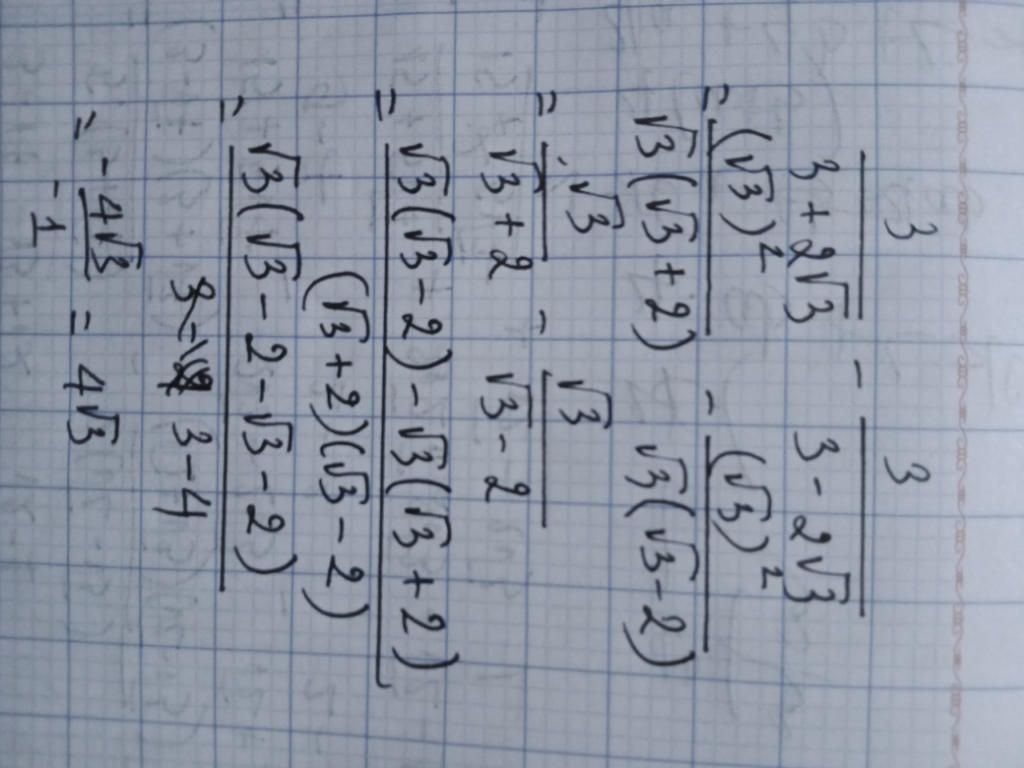 3/(3+2√3) - 3/(3-2√3)
= (√3)²/(√3(√3+2)) - (√3)²/(√3(√3-2))
= √3/(√3+2) - √3/(√3-2)
= (√3(√3-2)-√3(√3+2))/((√3+2)(√3-2))
= √3(√3-2-√3-2)/(3-4)
= -4√3/-1 = 4√3